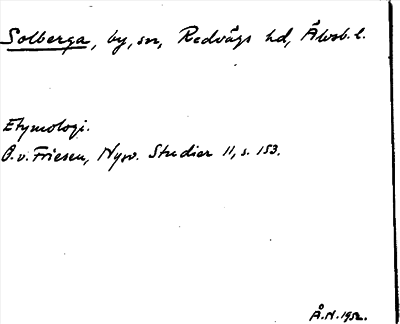 Solberga, by, sn, Redvägs hd, Älvsb. l.
Etymologi.
O. v. Friesen, Nysv. Studier 11, s. 153.
Å. H. 1952.